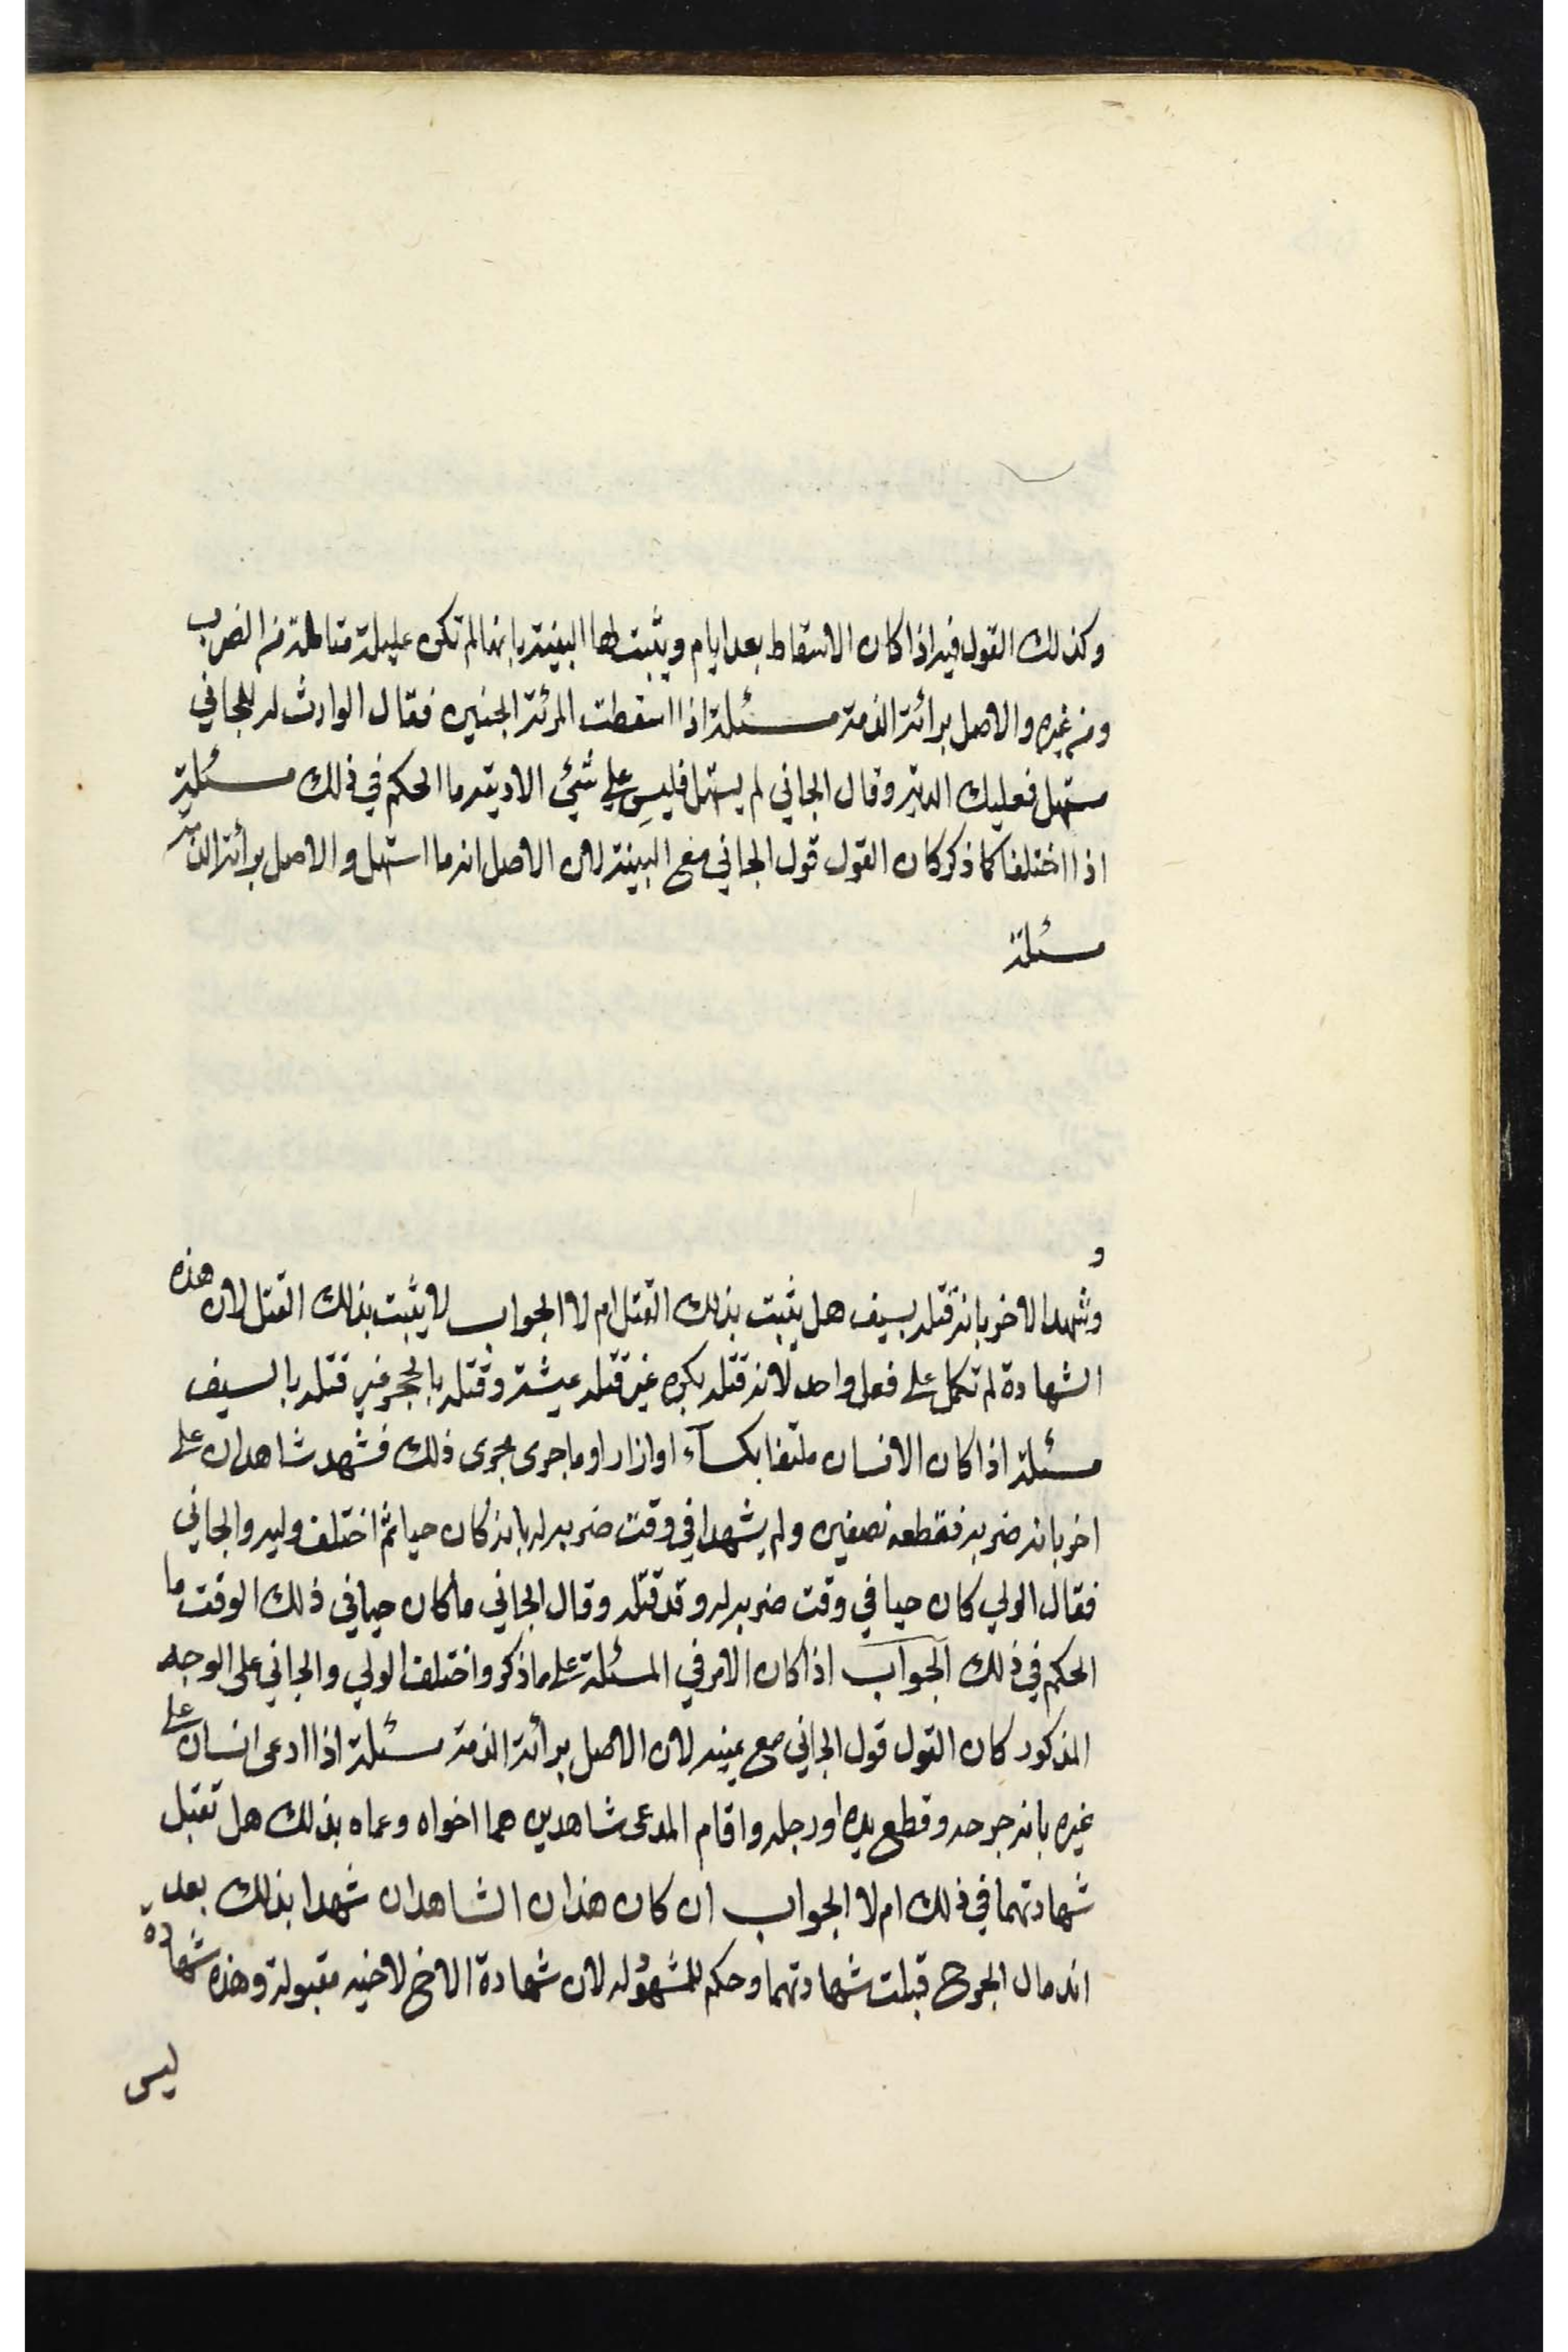 وكذلك القول فيه اذا كان الاسقاط بعد ايام ويثبت لها البينة بانها لم تكن عليلة متالمة من الضرب
ومن غيره والاصل برائة الذمة مسئلة اذا اسقطت المرئة الجنين فقال الوارث له للجاني
مستهل فعليك الدية وقال الجاني لم يستهل فليس علي شئ الا ديته ما الحكم في ذلك مسئلة
اذا اختلفا كما ذكر كان القول قول الجاني مع البينة لان الاصل انه ما استهل والاصل برأئة الذمة
مسئلة
و
وشهد الاخر بانه قتله بسيف هل يثبت بذلك القتل ام لا الجواب لا يثبت بذلك القتل لان هذه
الشهادة لم تكمل على فعل واحد لانه قتله بكرة غير قتله عيشة وقتله بالحجر غير قتله بالسيف
مسئلة اذا كان الانسان ملتفا بكسآء او ازار او ما جرى مجرى ذلك فشهد شاهدان على
اخر بانه ضربه فقطعه نصفين ولم يشهدا في وقت ضربه له بانه كان حيا ثم اختلف وليه والجاني
فقال الولي كان حيا في وقت ضربه له وقد قتله وقال الجاني ما كان حيا في ذلك الوقت ما
الحكم في ذلك الجواب اذا كان الامر في المسئلة على ما ذكر واختلف الولي والجاني على الوجه
المذكور كان القول قول الجاني مع يمينه لان الاصل برأئة الذمة مسئلة اذا ادعى انسان على
غيره بانه جرحه وقطع يده او رجله واقام المدعى شاهدين هما اخواه وعماه بذلك هل تقبل
شهادتهما في ذلك ام لا الجواب ان كان هذان الشاهدان شهدا بذلك بعد
اندمال الجرح قبلت شهادتهما وحكم للمشهود له لان شهادة الاخ لاخيه مقبولة وهذه شهادة
ليس